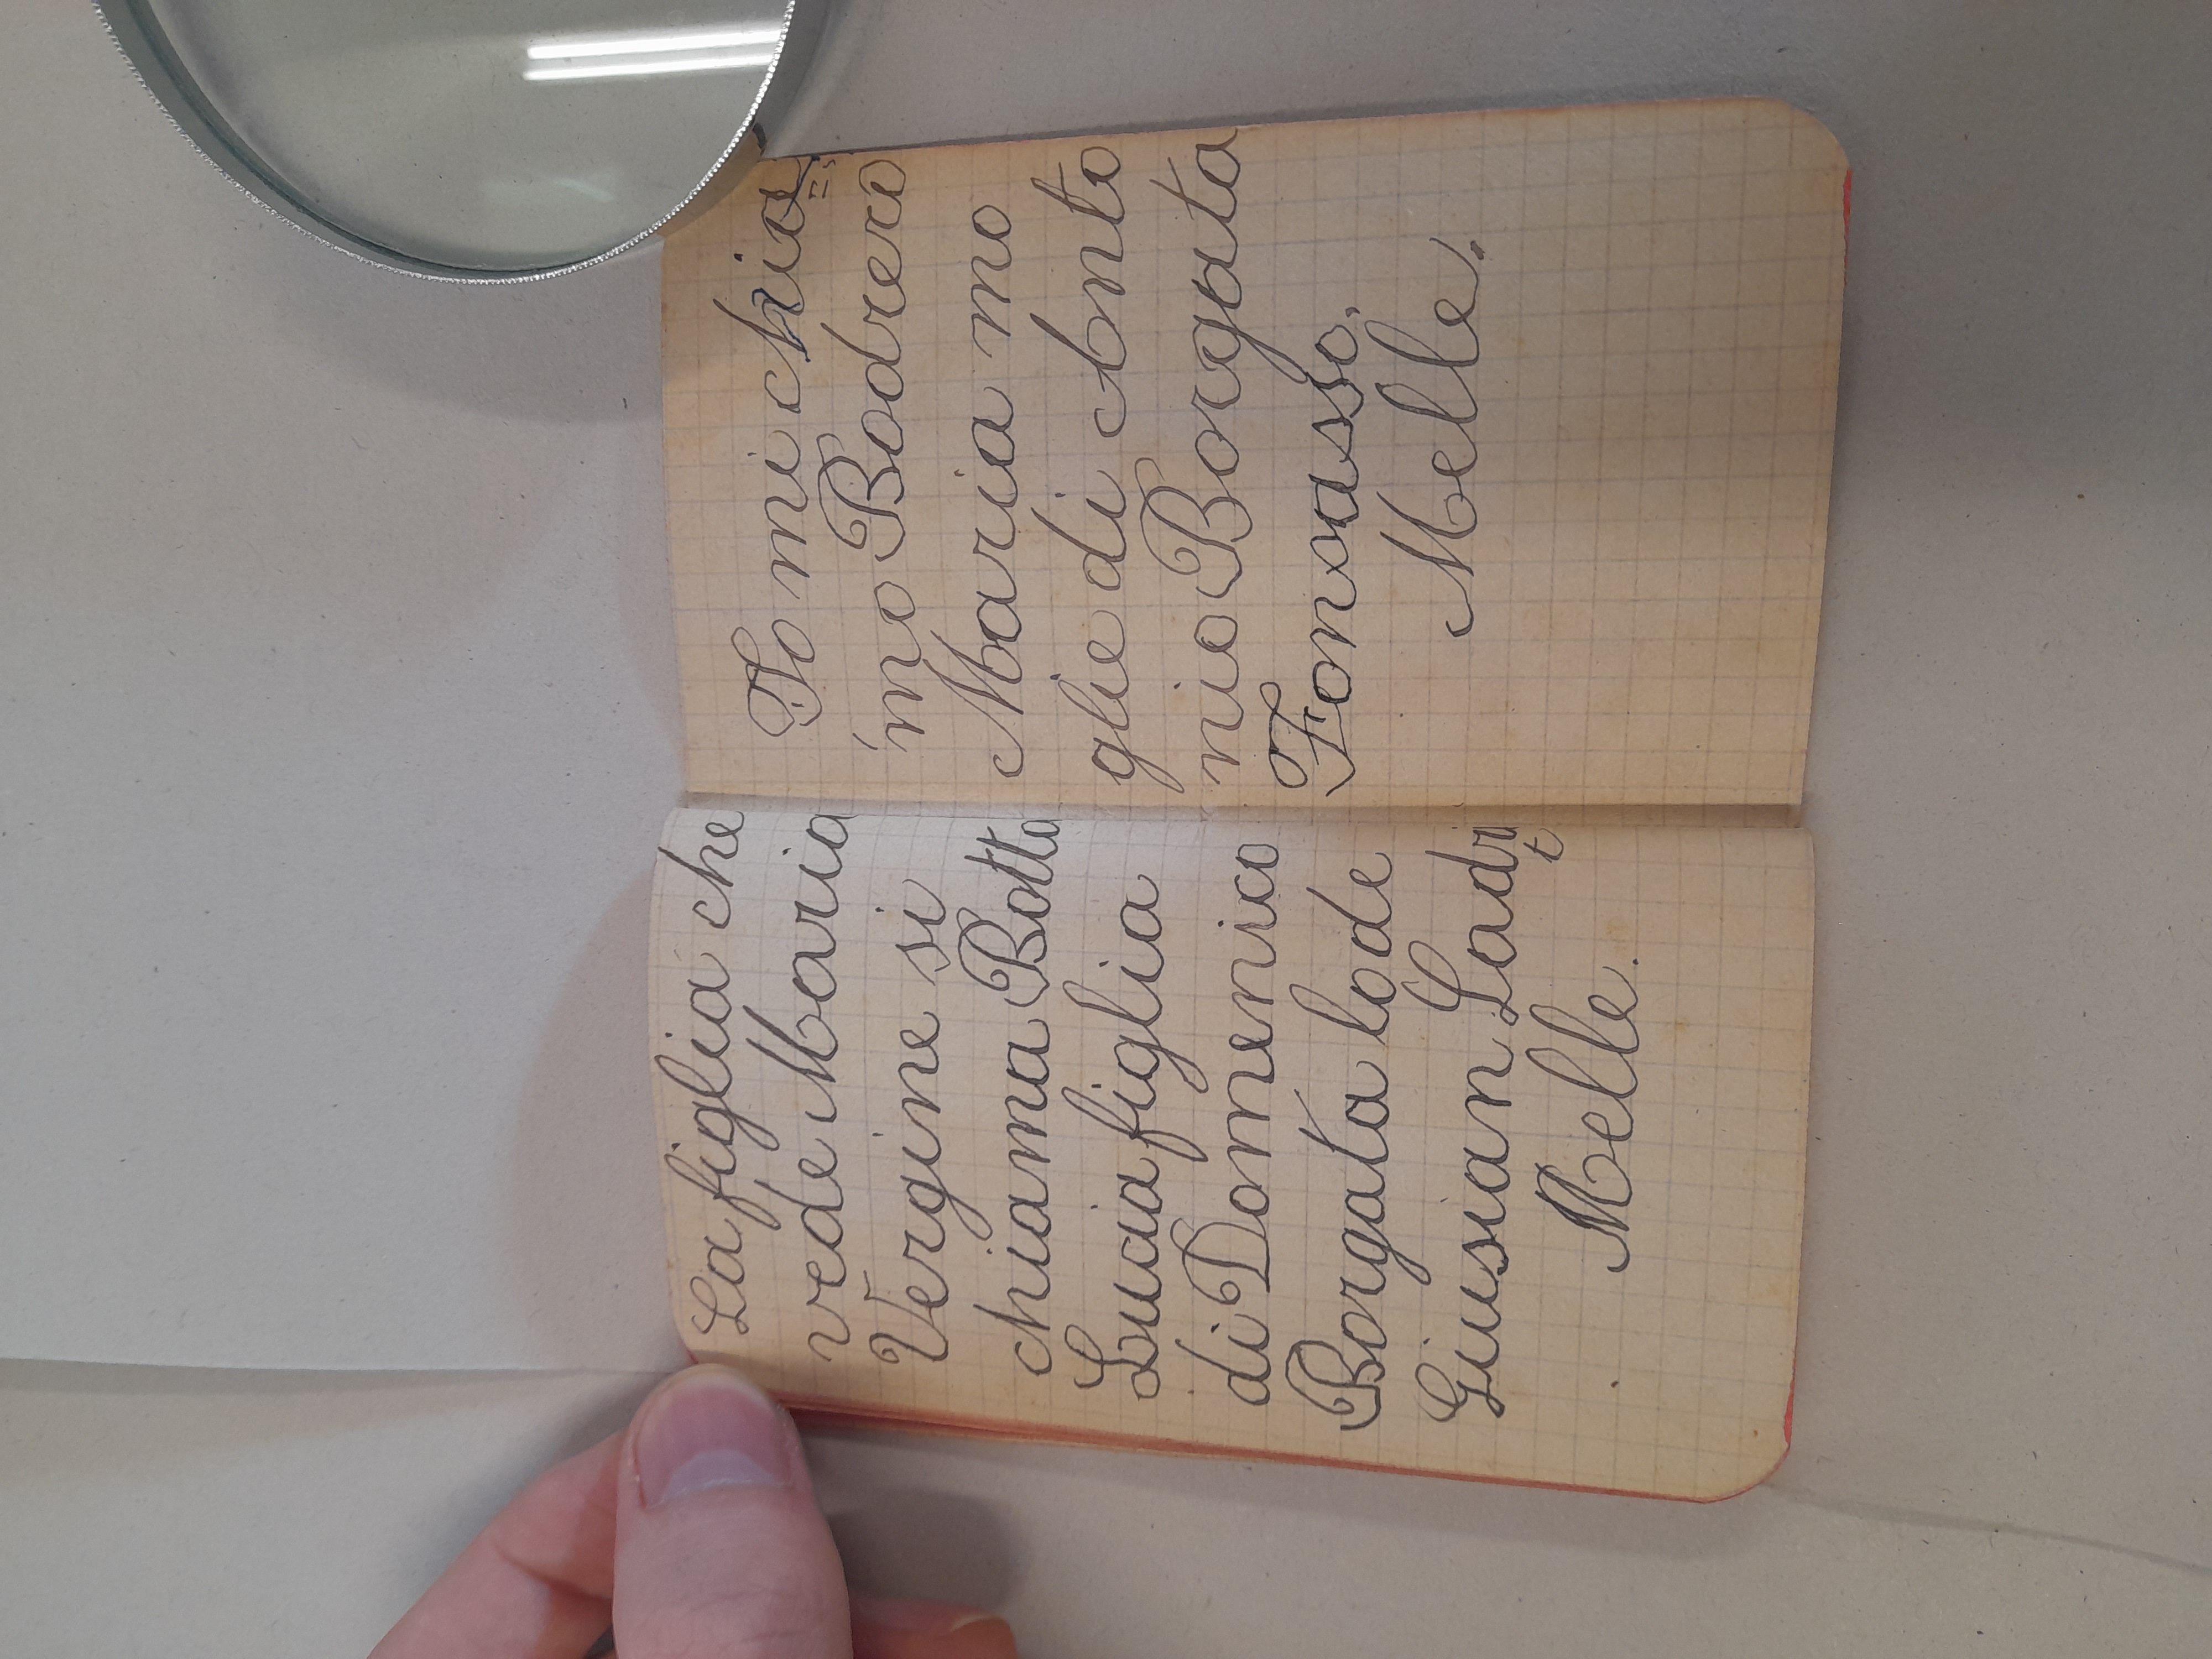 La figlia che
vede Maria
Vergine si
chiama Botta
Lucia figlia
di Domenico
Borgata lode
Giusian Ladr
t
Melle.
Io mi chia=
mo Bodrero
Maria mo
glie di Anto
nio Borgata
Fonvasso.
Melle.